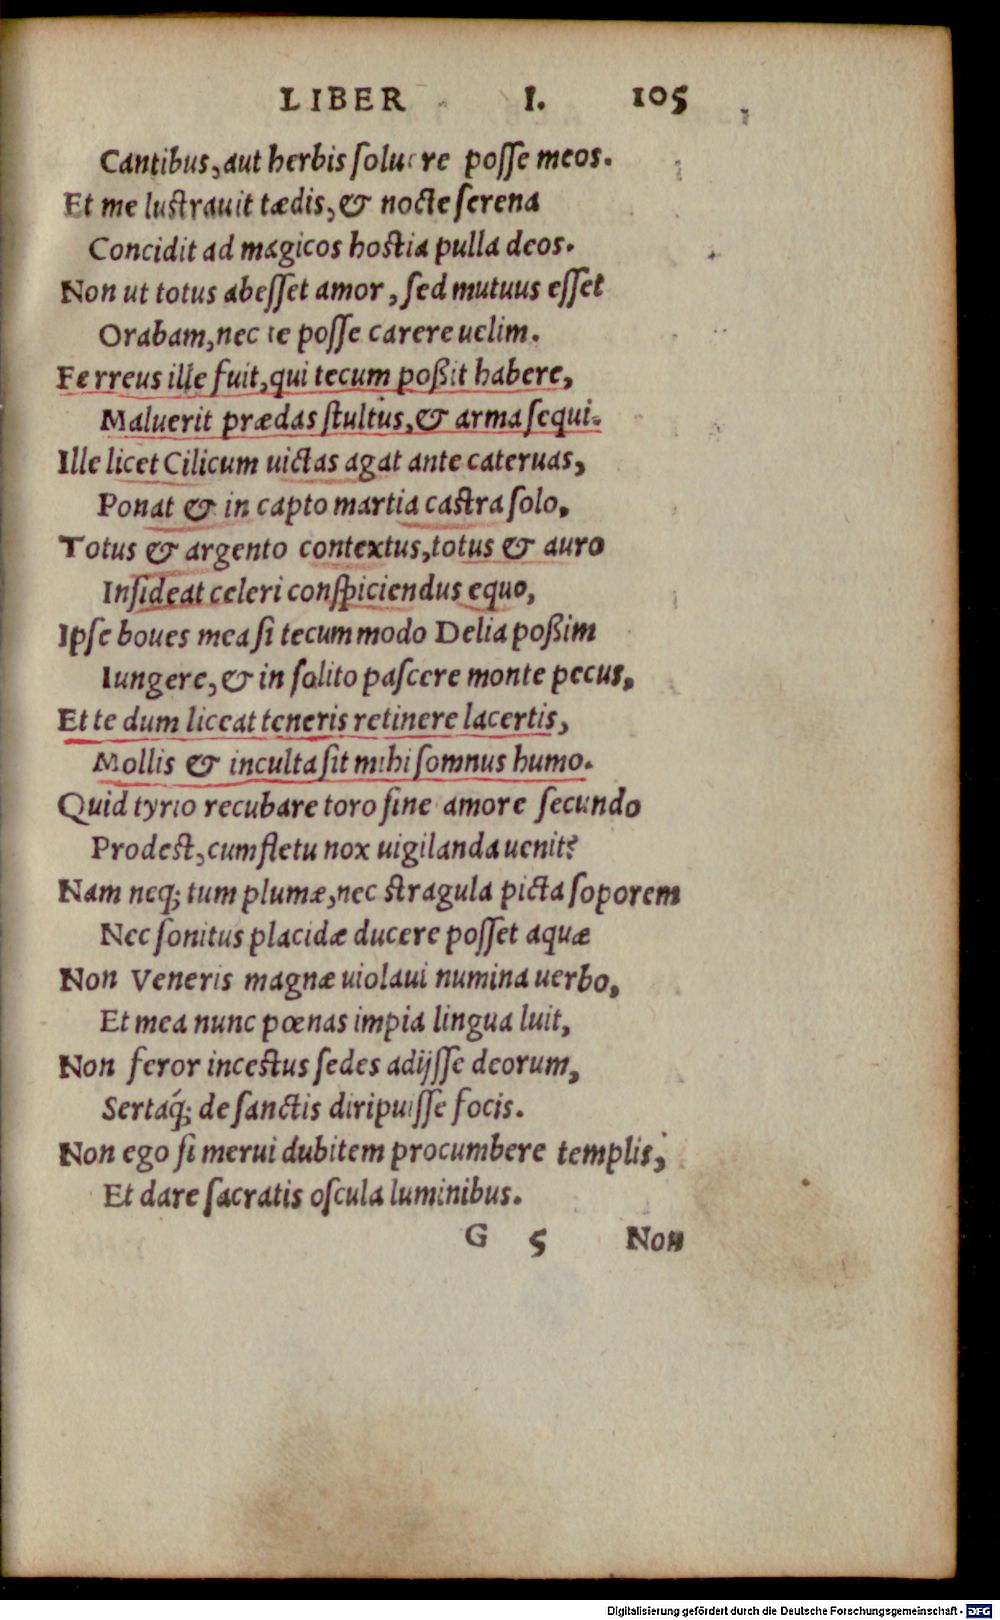 LIBER I. 105
Cantibus, aut herbis soluere posse meos.
Et me lustrauit tædis, & nocte serena
Concidit ad magicos hostia pulla deos.
Non ut totus abesset amor, sed mutuus esset
Orabam, nec te posse carere uelim.
Ferreus ille fuit, qui tecum poßit habere,
Maluerit prædas stultus, & arma sequi.
Ille licet Cilicum uictas agat ante cateruas,
Ponat & in capto martia castra solo,
Totus & argento contextus, totus & auro
Insideat celeri conspiciendus equo,
Ipse boues mea si tecum modo Delia poßim
Iungere, & in solito pascere monte pecus,
Et te dum liceat teneris retinere lacertis,
Mollis & inculta sit mihi somnus humo.
Quid tyrio recubare toro sine amore secundo
Prodest, cum fletu nox uigilanda uenit?
Nam neq; tum plumæ, nec stragula picta soporem
Nec sonitus placidæ ducere posset aquæ
Non Veneris magnæ uiolaui numina uerbo,
Et mea nunc pœnas impia lingua luit,
Non feror incestus sedes adijsse deorum,
Sertaq́; de sanctis diripuisse focis.
Non ego si merui dubitem procumbere templis,
Et dare sacratis oscula luminibus.
G 5 Non
Digitalisierung gefördert durch die Deutsche Forschungsgemeinschaft - DFG